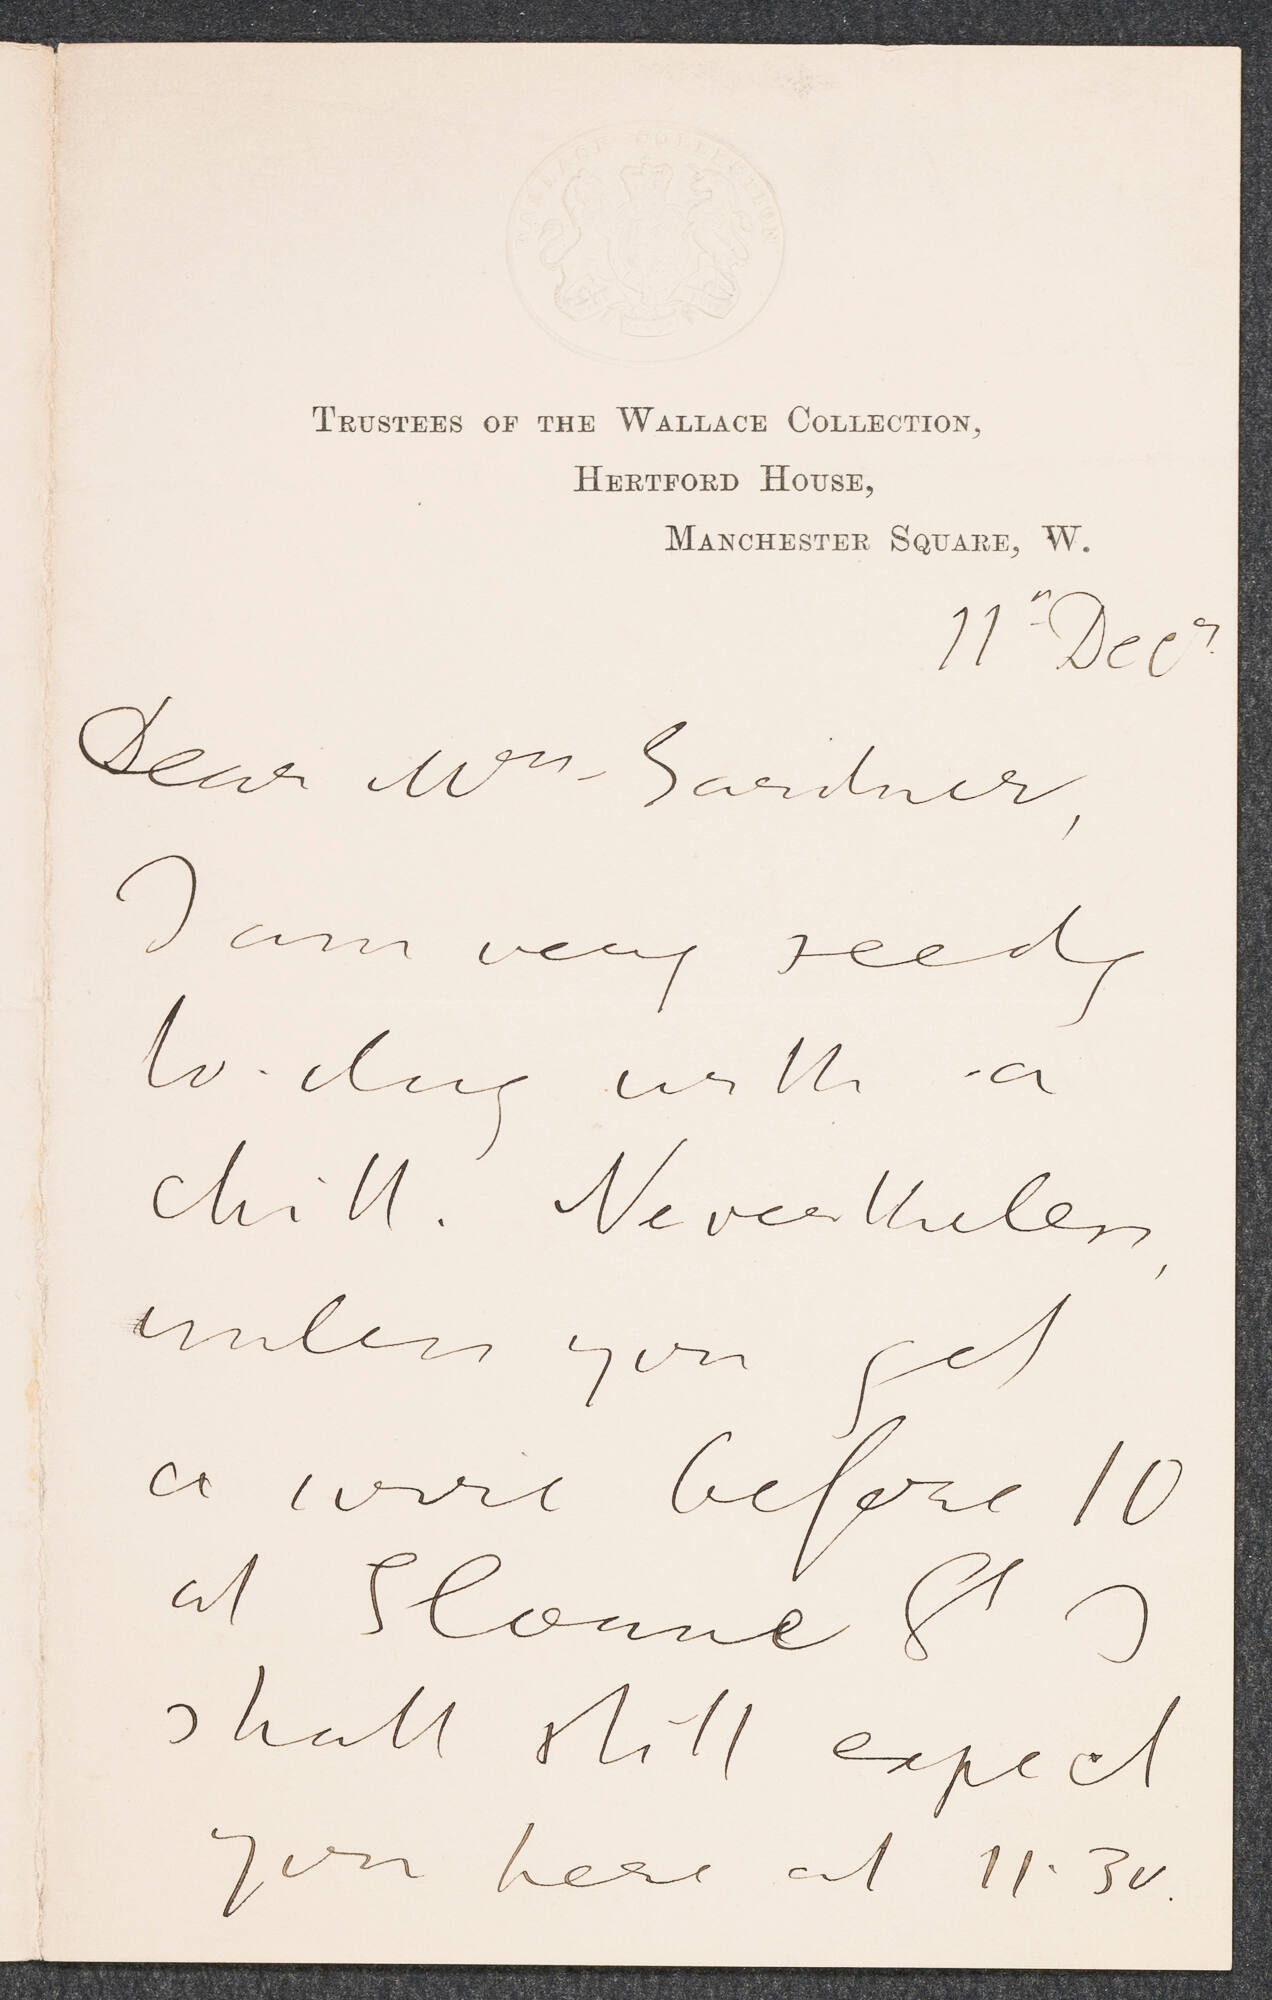 WALLACE COLLECTION
Trustees of the Wallace Collection,
Hertford House,
Manchester Square, W.
11th Decr.
Dear Mrs. Gardner,
I am very seedy
to-day with a
chill. Nevertheless,
unless you get
a wire before 10
at Sloane St I
shall still expect
you here at 11.30.